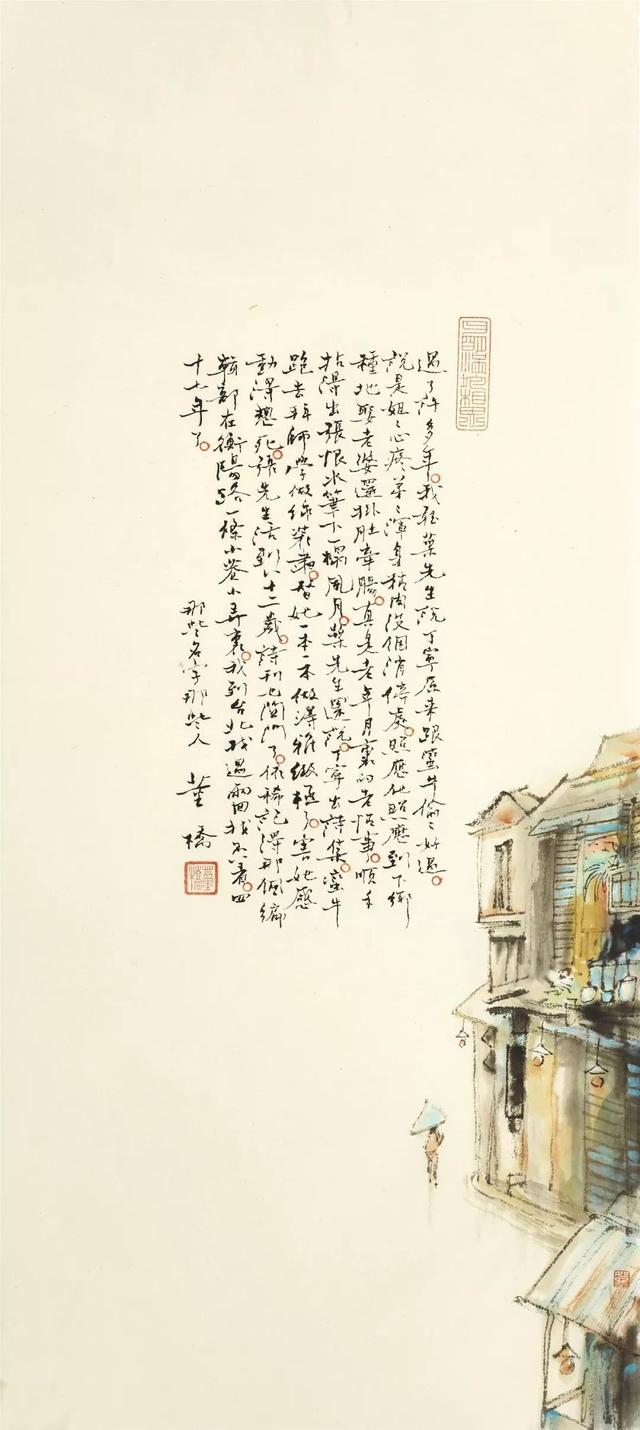 月明滿地相思
過了許多年。我聽葉先生說丁寧原來跟蠻牛偷〻好過。
說是姐〻心疼弟〻渾身精肉沒個消停處。照應他照應到下鄉
種地娶老婆還掛肚牽腸。真是老年月裏的老故事。順手
拈得出張恨水筆下一撮風月。葉先生還說。丁寧出詩集。蠻牛
跑去拜師學做線裝書。替她一本一本做得雅緻極了。害她感
動得想死。張先生活到八十二歲。詩刊也關門了。依稀記得那個編
輯部在衡陽路一條小巷小弄裏。我到台北找過兩回找不着。四
十七年了。
那些名字那些人 董橋
董橋